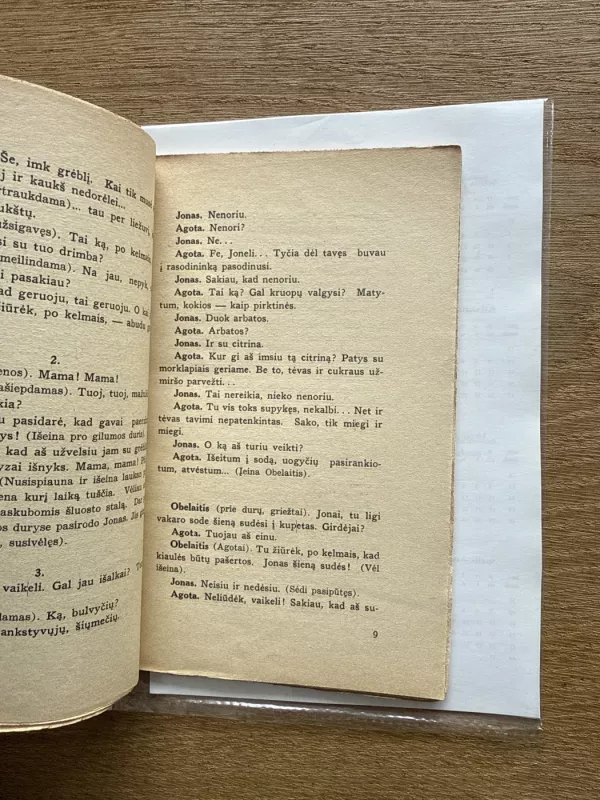 Še, imk grėblį. Kai tik
į ir kaukš nedorėlei...
rtraukdama)... tau per liežuvį
ukštų.
užsigavęs). Tai ką, po kelmais
si su tuo drimba?
meilindama). Na jau, nepyk,
i pasakiau?
ad geruoju, tai geruoju. O
žiūrėk, po kelmais, — abudu
2.
enos). Mama! Mama!
ašiepdamas). Tuoj, tuoj,
kia?
u pasidarė, kad gavai
ys! (Išeina pro gilumos duris
kad aš užvelsiu jam su
yzai išnyks. Mama, mama!
(Nusispiauna ir išeina laukan
ena kurį laiką tuščia.
askubomis šluosto stalą.
os duryse pasirodo Jonas. Jis
, susivėlęs).
3.
vaikeli. Gal jau išalkai?
damas). Ką, bulvyčių?
ankstyvųjų, šiųmečių.
Jonas. Nenoriu.
Agota. Nenori?
Jonas. Ne...
Agota. Fe, Joneli... Tyčia dėl tavęs buvau
į rasodininką pasodinusi.
Jonas. Sakiau, kad nenoriu.
Agota. Tai ką? Gal kruopų valgysi? Maty-
tum, kokios — kaip pirktinės.
Jonas. Duok arbatos.
Agota. Arbatos?
Jonas. Ir su citrina.
Agota. Kur gi aš imsiu tą citriną? Patys su
morklapiais geriame. Be to, tėvas ir cukraus už-
miršo parvežti...
Jonas. Tai nereikia, nieko nenoriu.
Agota. Tu vis toks supykęs, nekalbi... Net ir
tėvas tavimi nepatenkintas. Sako, tik miegi ir
miegi.
Jonas. O ką aš turiu veikti?
Agota. Išeitum į sodą, uogyčių pasirankio-
tum, atvėstum... (Įeina Obelaitis).
Obelaitis (prie durų, griežtai). Jonai, tu ligi
vakaro sode šieną sudėsi į kupetas. Girdėjai?
Agota. Tuojau aš einu.
Obelaitis (Agotai). Tu žiūrėk, po kelmais, kad
kiaulės būtų pašertos. Jonas šieną sudės! (Vėl
išeina).
Jonas. Neisiu ir nedėsiu. (Sėdi pasipūtęs).
Agota. Neliūdėk, vaikeli! Sakiau, kad aš su-
9